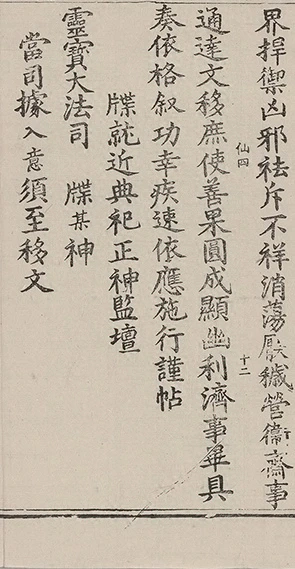 界捍禦凶邪祛斥不祥消蕩厭穢營衛齋事
仙四
十二
通達文移庶使善果圓成顯幽利濟事畢具
奏依格叙功幸疾速依應施行謹帖
牒就近典祀正神監壇
靈寶大法司 牒某神
當司據入意須至移文